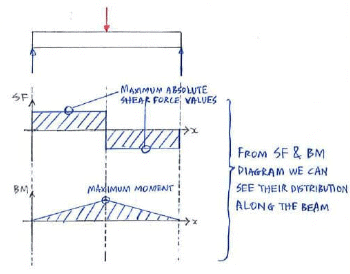 MAXIMUM ABSOLUTE
SHEAR FORCE VALUES
SF
x
FROM SF & BM
DIAGRAM WE CAN
SEE THEIR DISTRIBUTION
ALONG THE BEAM
BM
MAXIMUM MOMENT
x